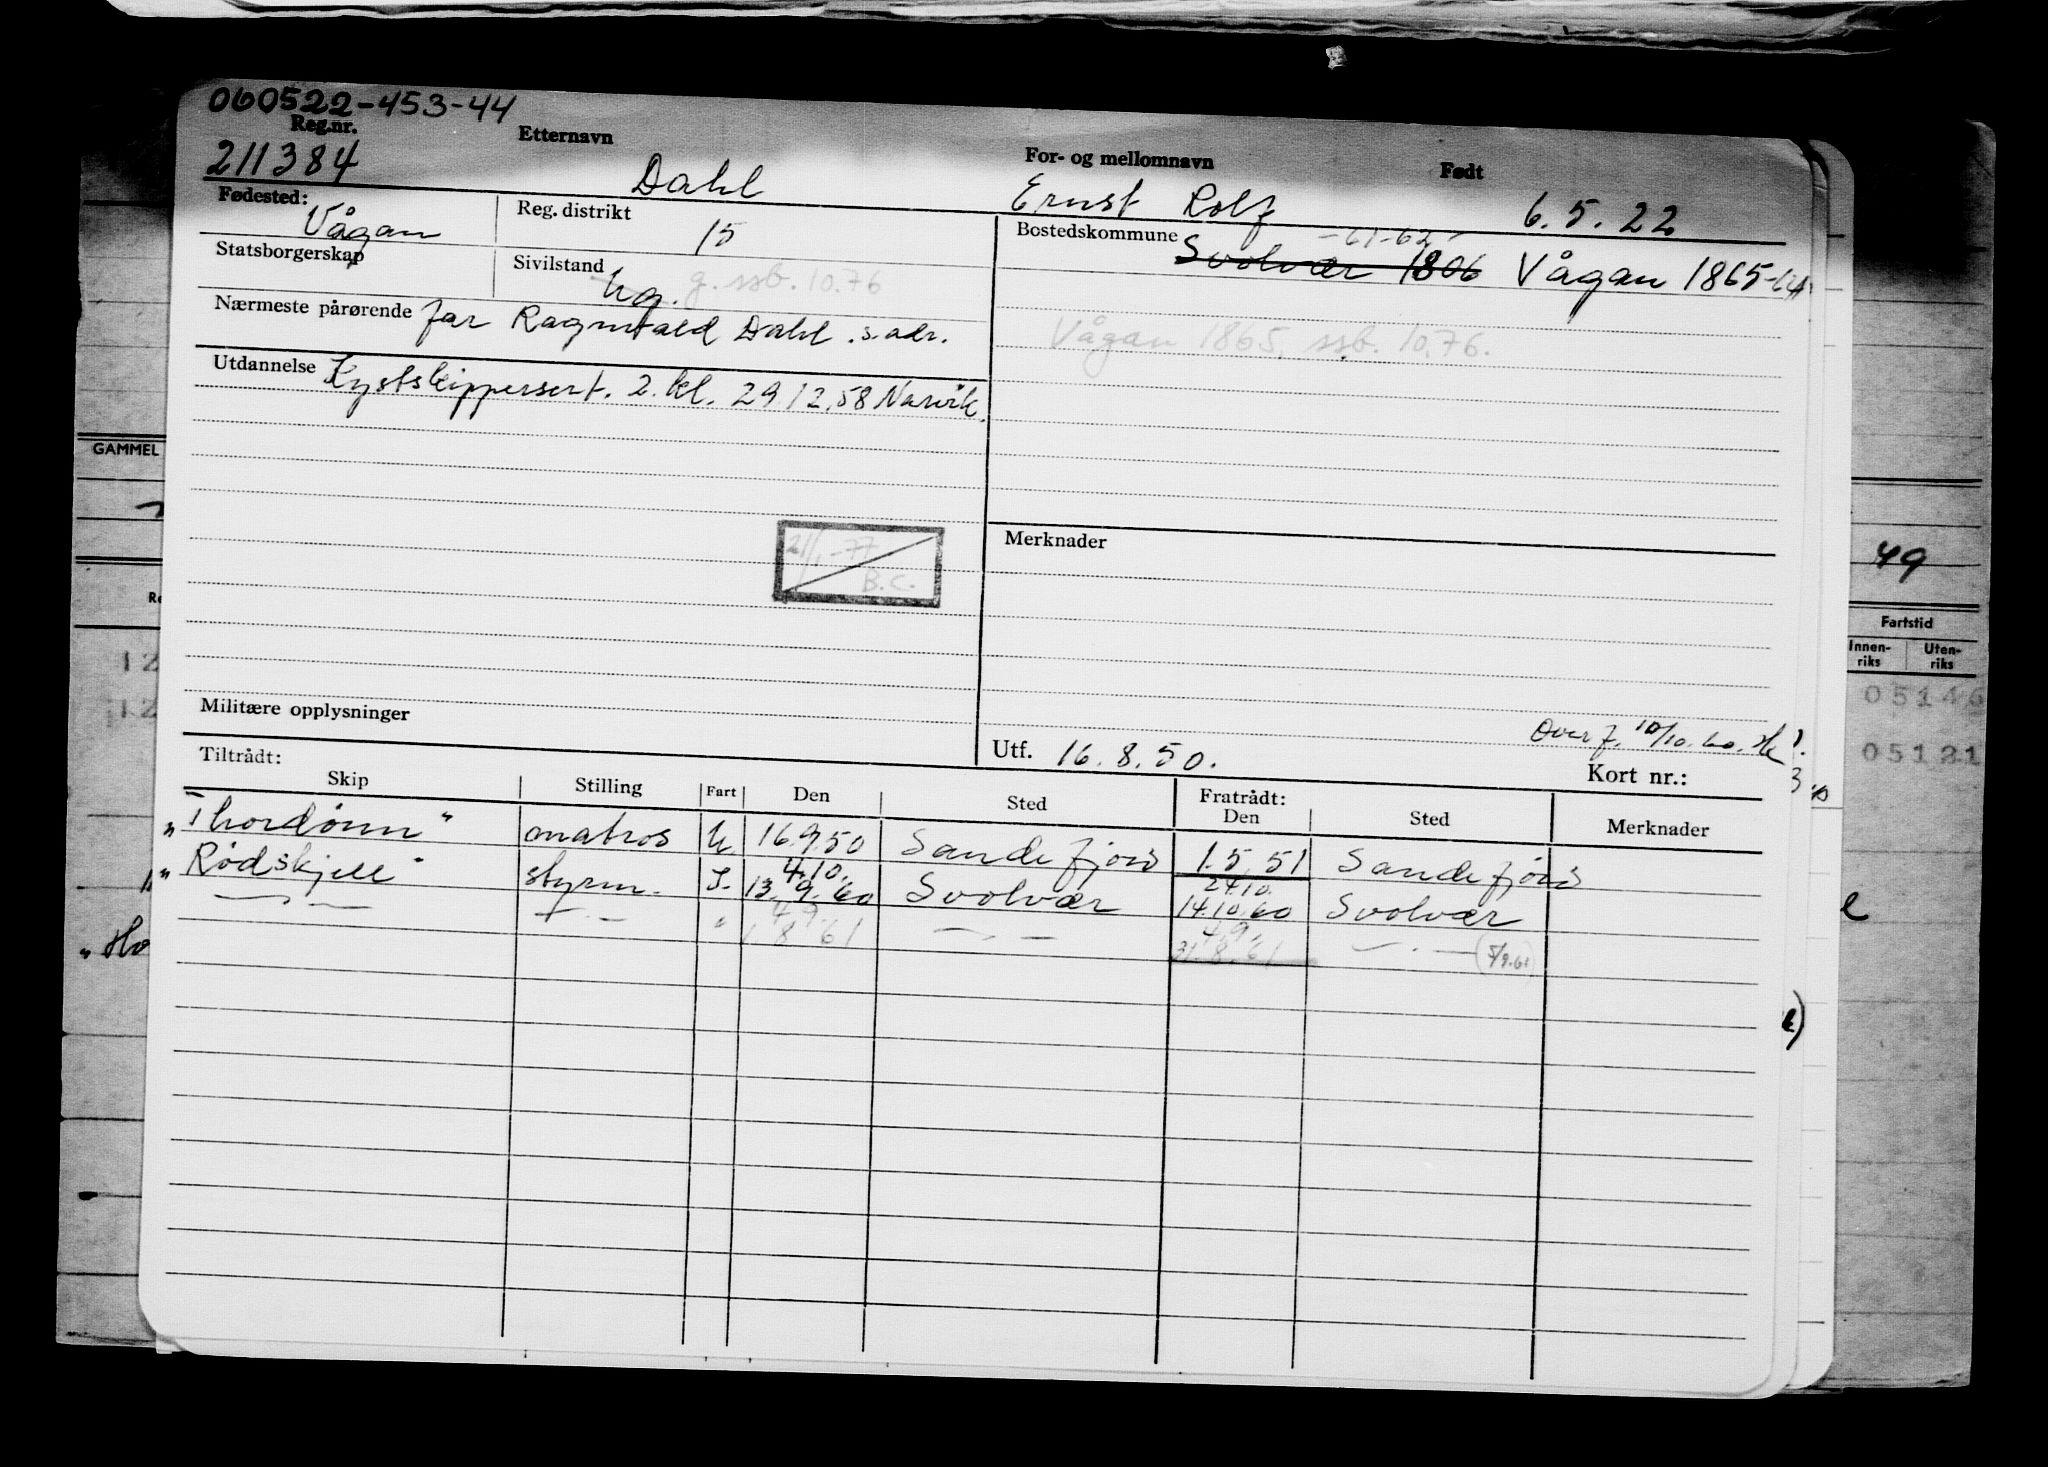 060522-453-44
Reg.nr. Etternavn For- og mellomnavn Født
211384 Dahl Ernst Rolf 6.5.22
Fødested: Vågan Reg. distrikt 15 Bostedskommune -61-62-
Svolvær 1806 Vågan 1865-64
Statsborgerskap Sivilstand ug. g. ssb. 10.76
Nærmeste pårørende far Ragnvald Dahl s. adr.
Vågan 1865. ssb. 10.76.
Utdannelse Kystskippersert. 2. kl. 29 12.58 Narvik.
GAMMEL
21/1-77
B.C.
Merknader
49
Re
Fartstid
Innen-riks Uten-riks
12 05146
12 05121
Militære opplysninger
Utf. 16.8.50. Overf. 10/10.60. Hk
Tiltrådt: Kort nr.:
Skip Stilling Fart Den Sted Fratrådt: Den Sted Merknader
"Thordønn" matros U. 16.9.50 Sandefjord 1.5.51 Sandefjord
4.10. 24.10.
"Rødskjell" styrm. I. 13.9.60 Svolvær 14.10.60 Svolvær
4.9. 4.9.
— " — — " — " 1.8.61 — " — 31.8.61 — " — (5/9.61)
"Ho